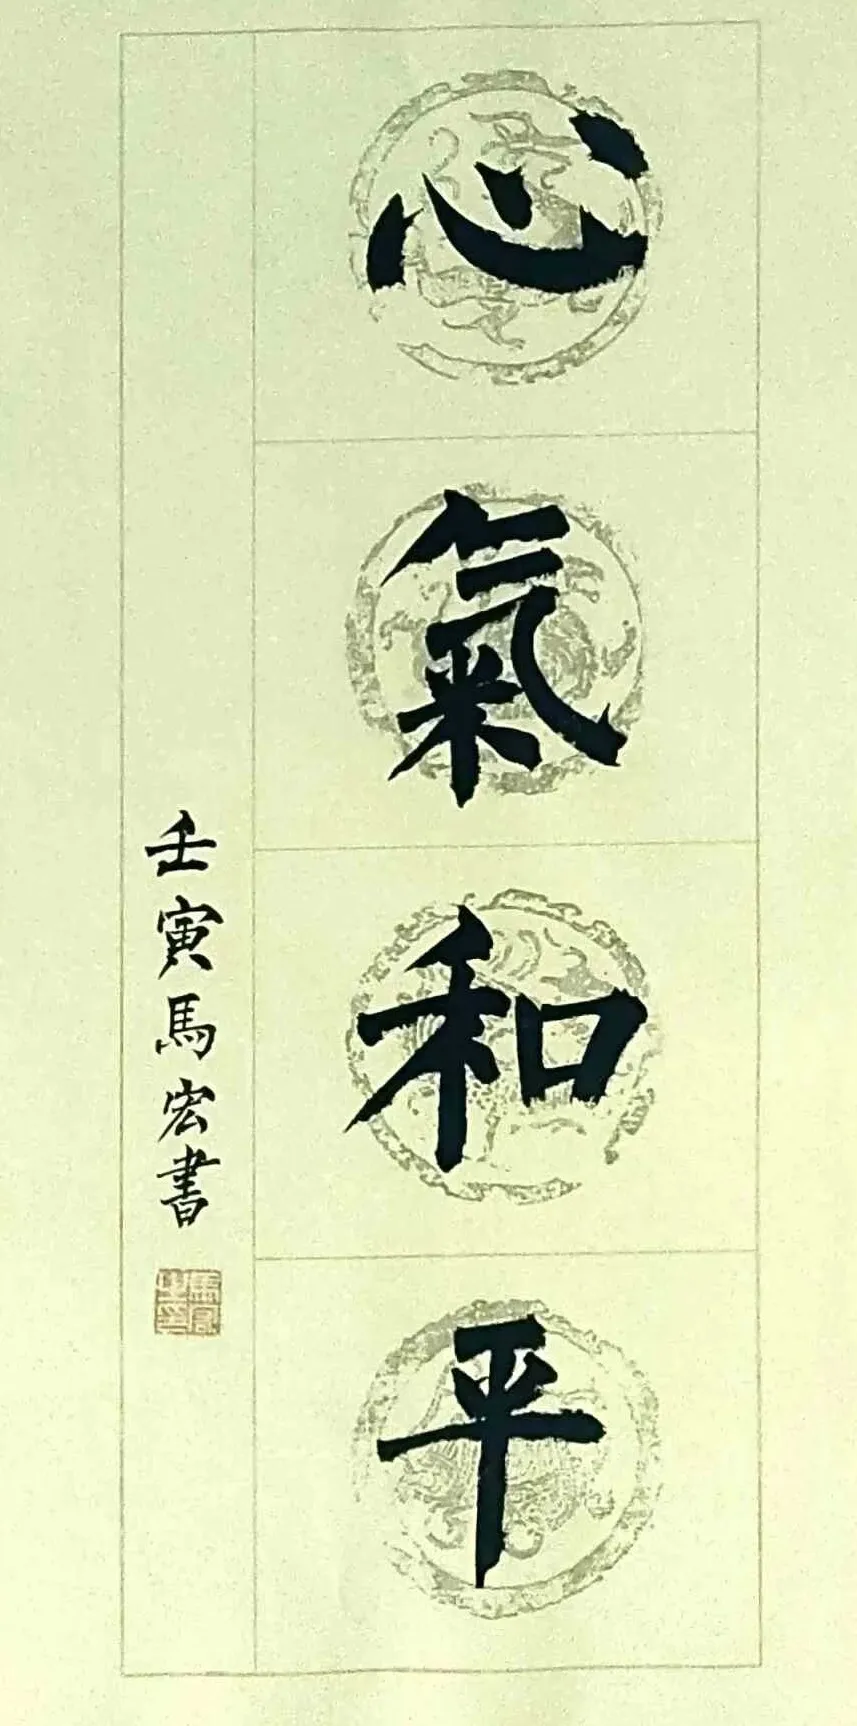 心氣和平
壬寅馬宏書